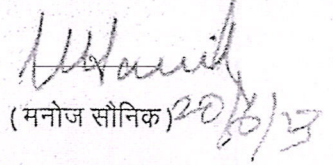 (मनोज सौनिक) 20/6/23